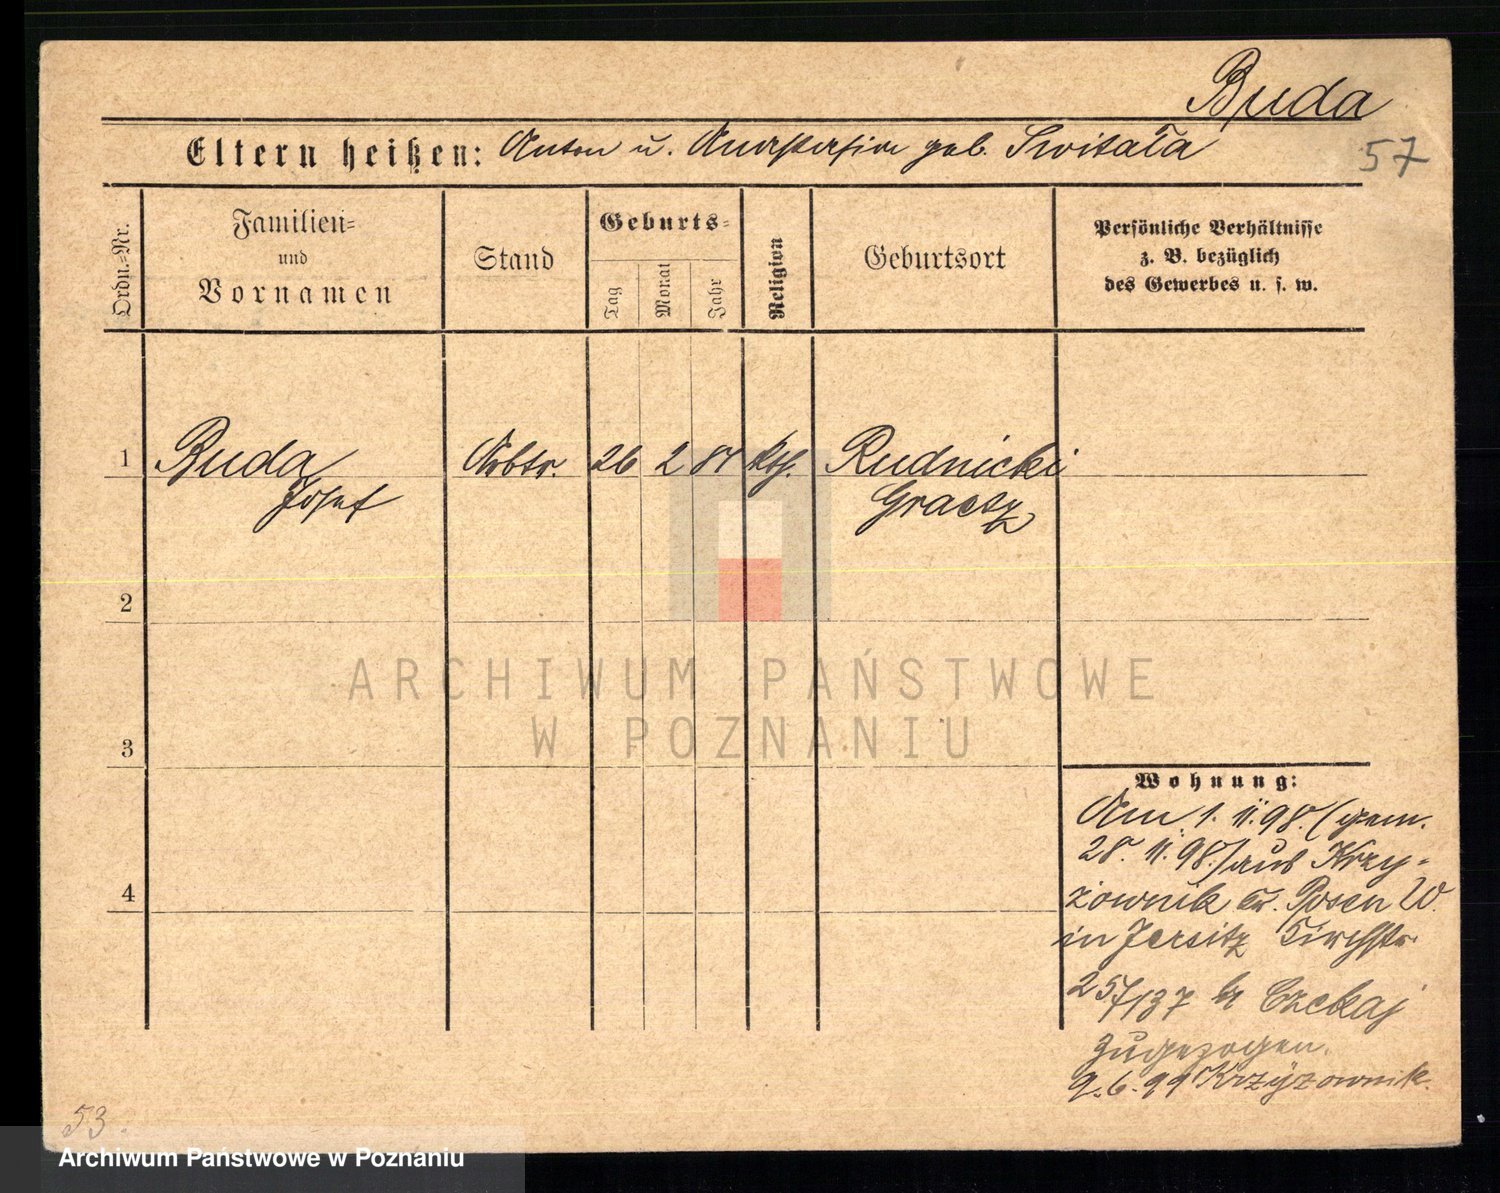 Buda
Eltern heißen: Anton u. Anastasia geb. Switała
57
Ordn.-Nr.
Familien-
und
Vornamen
Stand
Geburts-
Tag
Monat
Jahr
Religion
Geburtsort
Persönliche Verhältnisse
z. B. bezüglich
des Gewerbes u. s. w.
1 Buda Arbtr. 26 2 81 kth. Rudnicki
Josef Graetz
2
3
4
Wohnung:
Am 1. 11. 98. (gem.
28. 11. 98.) aus Krzy-
żownik Kr. Posen W.
in Jersitz Kirchstr.
/37 b Czekaj
Zugezogen.
9. 6. 99 Krzyżownik.
53.
ARCHIWUM PAŃSTWOWE
W POZNANIU
Archiwum Państwowe w Poznaniu